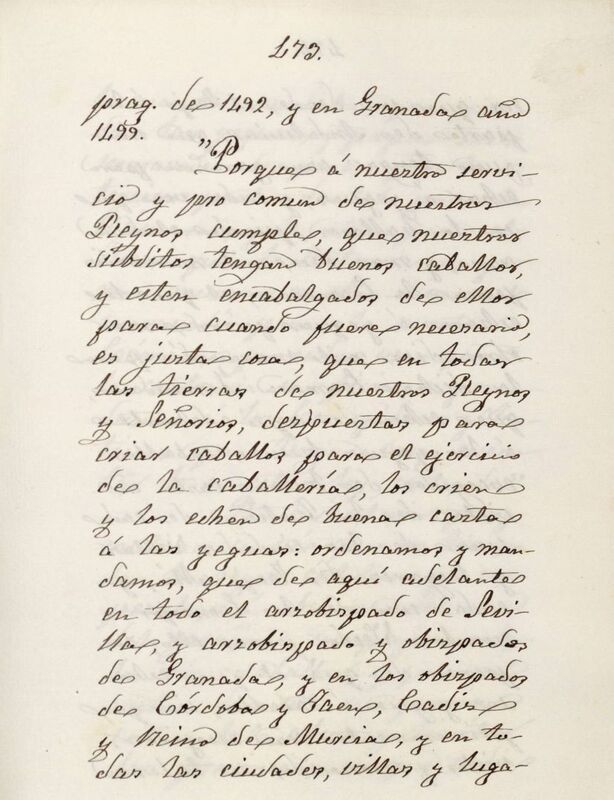 173.
prag. de 1492, y en Granada año
1499.
"Porque á nuestro servi-
cio y pro comun de nuestros
Reynos cumple, que nuestros
súbditos tengan buenos caballos,
y esten encabalgados de ellos
para cuando fuere necesario,
es justa cosa, que en todas
las tierras de nuestros Reynos
y Señorios, dezpuestas para
criar caballos para el ejercicio
de la caballería, los crien
y los echen de buena casta
á las yeguas: ordenamos y man-
damos, que de aquí adelante
en todo el arzobispado de Sevi-
lla, y arzobispado y obispados
de Granada, y en los obispados
de Córdoba y Jaen, Cadiz
y Reino de Murcia, y en to-
das las ciudades, villas y luga-